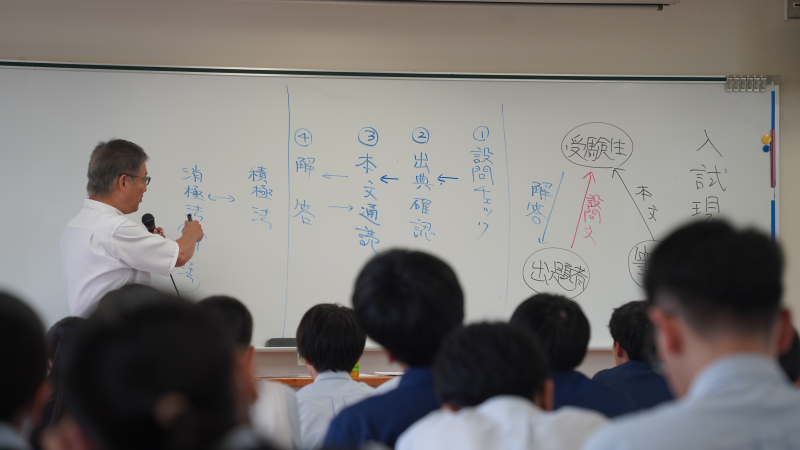 入試現
受験生
本文
設問文
解答
出題者
①設問チェック
②出典確認
③本文通読
④解答
積極法
消極法